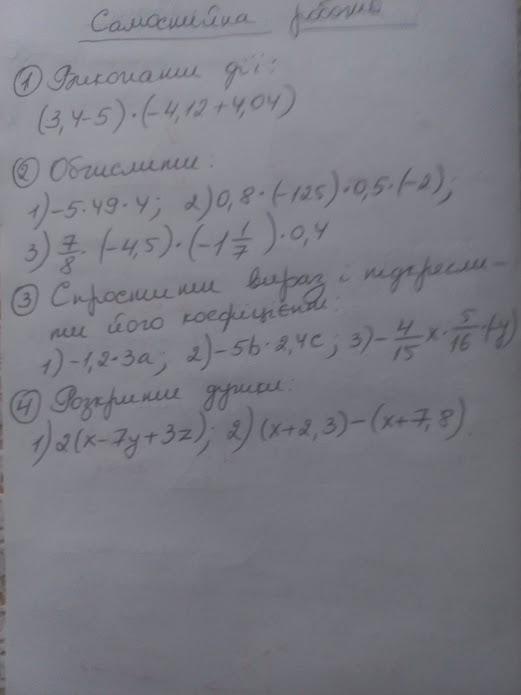 Самостійна робота
① Виконати дії:
(3,4-5)·(-4,12+4,04)
② Обчислити:
1)-5·49·4; 2)0,8·(-125)·0,5·(-2);
3) 7/8·(-4,5)·(-1 1/7)·0,4
③ Спростити вираз і підкресли-
ти його коефіцієнт:
1)-1,2·3a; 2)-5b·2,4c; 3)-4/15x·5/16·(-y)
④ Розкрити дужки:
1)2(x-7y+3z); 2)(x+2,3)-(x+7,8)